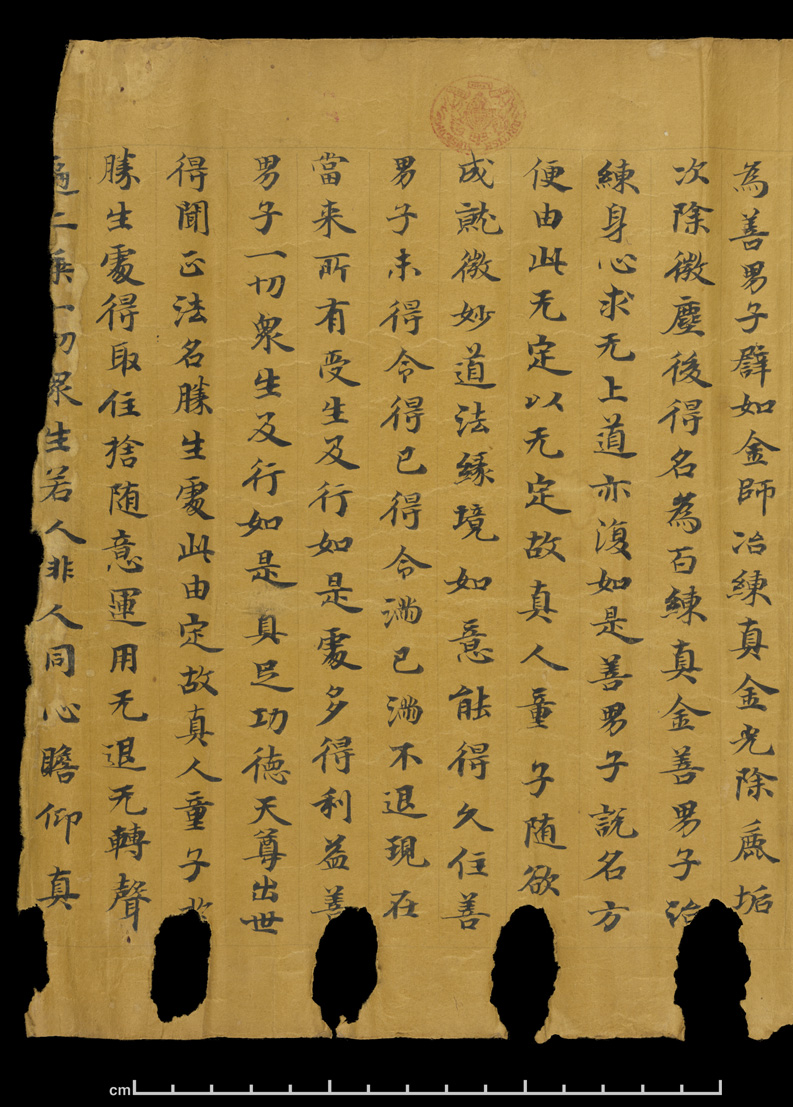 為善男子譬如金師冶練真金光除麁垢
次除微塵後得名為百練真金善男子治
練身心求无上道亦復如是善男子説名方
便由此无定以无定故真人童子随欲
成就微妙道法縁境如意能得久住善
男子未得令得已得令満已満不退現在
當来所有受生及行如是處多得利益善
男子一切衆生及行如是具足功徳天尊出世
得聞正法名勝生處此由定故真人童子
勝生處得取住捨随意運用无退无轉聲
二乗一切衆生若人非人同心瞻仰真
cm